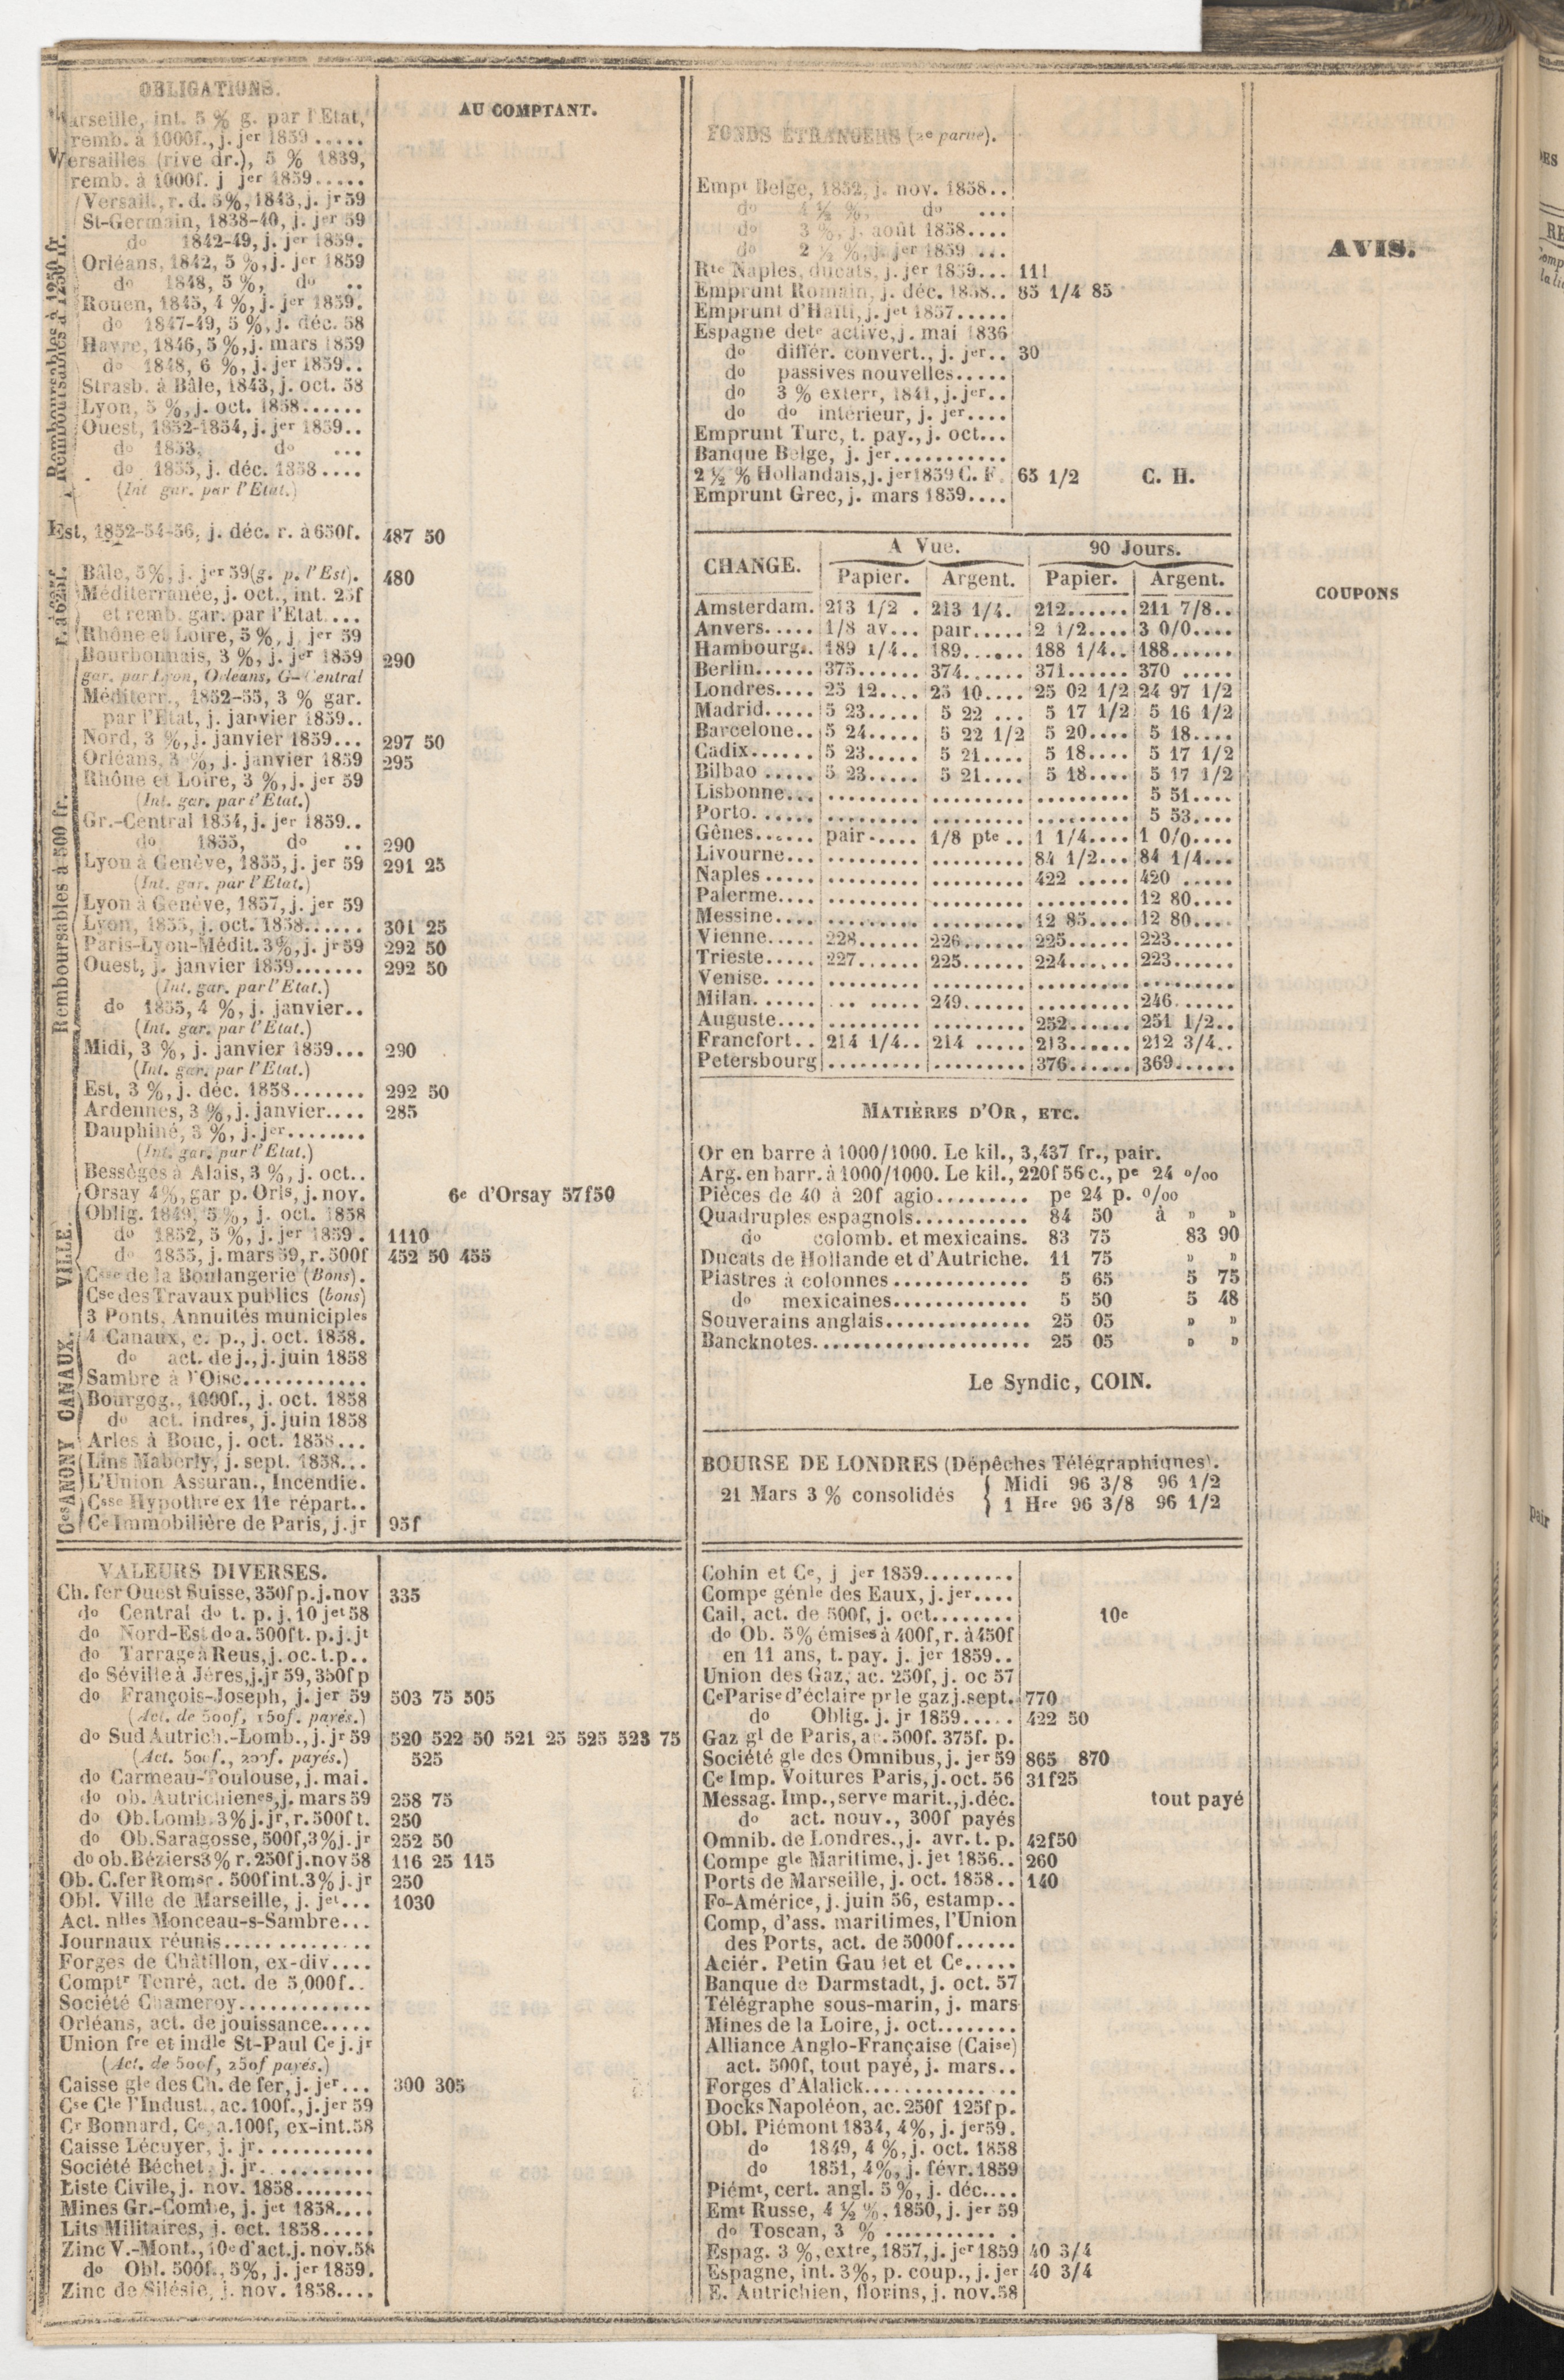 OBLIGATIONS.
AU COMPTANT.
Marseille, int. 5 % g. par l'Etat,
remb. à 1000f., j. jer 1859 .....
Versailles (rive dr.), 5 % 1839,
remb. à 1000f. j jer 1859.....
Remboursables à 1250 fr.
Versail., r. d. 5%, 1843, j. jr 59
St-Germain, 1838-40, j. jer 59
do 1842-49, j. jer 1859.
Orléans, 1842, 5 %, j. jer 1859
do 1848, 5 %, do ..
Rouen, 1845, 4 %, j. jer 1859.
do 1847-49, 5 %, j. déc. 58
Havre, 1846, 5 %, j. mars 1859
do 1848, 6 %, j. jer 1859..
Strasb. à Bâle, 1843, j. oct. 58
Lyon, 5 %, j. oct. 1858......
Ouest, 1852-1854, j. jer 1859..
do 1853, do ...
do 1855, j. déc. 1858....
(Int gar. par l'Etat.)
Est, 1852-54-56, j. déc. r. à 650f. 487 50
r. à 625f.
Bâle, 5%, j. jer 59 (g. p. l'Est). 480
Méditerranée, j. oct., int. 25f
et remb. gar. par l'Etat....
Rhône et Loire, 5 %, j. jer 59
Remboursables à 500 fr.
Bourbonnais, 3 %, j. jer 1859 290
gar. par Lyon, Orleans, G-Central
Méditerr., 1852-55, 3 % gar.
par l'Etat, j. janvier 1859..
Nord, 3 %, j. janvier 1859... 297 50
Orléans, 3 %, j. janvier 1859 295
Rhône et Loire, 3 %, j. jer 59
(Int. gar. par l'Etat.)
Gr.-Central 1854, j. jer 1859..
do 1855, do .. 290
Lyon à Genève, 1855, j. jer 59 291 25
(Int. gar. par l'Etat.)
Lyon à Genève, 1857, j. jer 59
Lyon, 1855, j. oct. 1858...... 301 25
Paris-Lyon-Médit. 3%, j. jr 59 292 50
Ouest, j. janvier 1859....... 292 50
(Int. gar. par l'Etat.)
do 1855, 4 %, j. janvier..
(Int. gar. par l'Etat.)
Midi, 3 %, j. janvier 1859... 290
(Int. gar. par l'Etat.)
Est, 3 %, j. déc. 1858....... 292 50
Ardennes, 3 %, j. janvier.... 285
Dauphiné, 3 %, j. jer........
(Int. gar. par l'Etat.)
Bessèges à Alais, 3 %, j. oct..
VILLE.
Orsay 4%, gar p. Orls, j. nov. 6e d'Orsay 57f50
Oblig. 1849, 5 %, j. oct. 1858
do 1852, 5 %, j. jer 1859. 1110
do 1855, j. mars 59, r. 500f 452 50 455
Csse de la Boulangerie (Bons).
Cse des Travaux publics (bons)
3 Ponts, Annuités municiples
CANAUX.
4 Canaux, c. p., j. oct. 1858.
do act. de j., j. juin 1858
Sambre à l'Oise............
Bourgog., 1000f., j. oct. 1858
do act. indres, j. juin 1858
Arles à Bouc, j. oct. 1858...
Ces ANONY
Lins Maberly, j. sept. 1858...
L'Union Assuran., Incendie.
Csse Hypothre ex 11e répart..
Ce Immobilière de Paris, j. jr 95f
VALEURS DIVERSES.
Ch. fer Ouest Suisse, 350f p. j. nov 335
do Central do t. p. j. 10 jet 58
do Nord-Est do a. 500f t. p. j. jt
do Tarrage à Reus, j. oc. t. p..
do Séville à Jéres, j. jr 59, 350f p
do François-Joseph, j. jer 59 503 75 505
(Act. de 500f, 150f. payés.)
do Sud Autrich.-Lomb., j. jr 59 520 522 50 521 25 525 523 75
(Act. 500f., 200f. payés.) 525
do Carmeau-Toulouse, j. mai.
do ob. Autrichienes, j. mars 59 258 75
do Ob. Lomb. 3% j. jr, r. 500f t. 250
do Ob. Saragosse, 500f, 3% j. jr 252 50
do ob. Béziers 3% r. 250f j. nov 58 116 25 115
Ob. C. fer Roms. 500f int. 3% j. jr 250
Obl. Ville de Marseille, j. jet... 1030
Act. nlles Monceau-s-Sambre...
Journaux réunis..............
Forges de Châtillon, ex-div....
Comptr Tenré, act. de 5,000f..
Société Chameroy............
Orléans, act. de jouissance.....
Union fre et indle St-Paul Ce j. jr
(Act. de 500f, 250f payés.)
Caisse gle des Ch. de fer, j. jer... 300 305
Cse Cle l'Indust., ac. 100f., j. jer 59
Cr Bonnard, Ce, a. 100f, ex-int. 58
Caisse Lécuyer, j. jr. ..........
Société Béchet, j. jr. .........
Liste Civile, j. nov. 1858........
Mines Gr.-Combe, j. jet 1858....
Lits Militaires, j. oct. 1858.....
Zinc V.-Mont., 10e d'act. j. nov. 58
do Obl. 500f., 5%, j. jer 1859.
Zinc de Silésie, j. nov. 1858....
FONDS ÉTRANGERS (2e partie).
Empt Belge, 1852, j. nov. 1858..
do 4 ½ %, do ...
do 3 %, j. août 1858....
do 2 ½ %, j. jer 1859 ...
Rte Naples, ducats, j. jer 1859... 111
Emprunt Romain, j. déc. 1858.. 85 1/4 85
Emprunt d'Haïti, j. jet 1857.....
Espagne dete active, j. mai 1836
do différ. convert., j. jer.. 30
do passives nouvelles.....
do 3 % exterr, 1841, j. jer..
do do intérieur, j. jer....
Emprunt Turc, t. pay., j. oct...
Banque Belge, j. jer...........
2 ½ % Hollandais, j. jer 1859 C. F. 65 1/2 C. H.
Emprunt Grec, j. mars 1859....
CHANGE. A Vue. 90 Jours.
Papier. Argent. Papier. Argent.
Amsterdam. 213 1/2 . 213 1/4. 212...... 211 7/8..
Anvers..... 1/8 av... pair..... 2 1/2.... 3 0/0....
Hambourg.. 189 1/4.. 189...... 188 1/4.. 188......
Berlin...... 375...... 374...... 371...... 370 .....
Londres.... 25 12.... 25 10.... 25 02 1/2 24 97 1/2
Madrid..... 5 23..... 5 22 ... 5 17 1/2 5 16 1/2
Barcelone.. 5 24..... 5 22 1/2 5 20.... 5 18....
Cadix...... 5 23..... 5 21.... 5 18.... 5 17 1/2
Bilbao ..... 5 23..... 5 21.... 5 18.... 5 17 1/2
Lisbonne... ......... ......... ......... 5 51....
Porto. ..... ......... ......... ......... 5 53....
Gênes...... pair..... 1/8 pte .. 1 1/4.... 1 0/0....
Livourne... ......... ......... 84 1/2... 84 1/4...
Naples ..... ......... ......... 422 ..... 420 .....
Palerme.... ......... ......... ......... 12 80....
Messine.... ......... ......... 12 85.... 12 80....
Vienne..... 228...... 226...... 225...... 223......
Trieste..... 227...... 225...... 224...... 223......
Venise. ..... ......... ......... ......... .........
Milan. ...... ... ..... 249...... ......... 246......
Auguste.... ......... ......... 252...... 251 1/2..
Francfort.. 214 1/4.. 214 ..... 213...... 212 3/4..
Petersbourg ......... ......... 376...... 369......
MATIÈRES D'OR, ETC.
Or en barre à 1000/1000. Le kil., 3,437 fr., pair.
Arg. en barr. à 1000/1000. Le kil., 220f 56 c., pe 24 0/00
Pièces de 40 à 20f agio......... pe 24 p. 0/00
Quadruples espagnols........... 84 50 à » »
do colomb. et mexicains. 83 75 83 90
Ducats de Hollande et d'Autriche. 11 75 » »
Piastres à colonnes ............. 5 65 5 75
do mexicaines............. 5 50 5 48
Souverains anglais.............. 25 05 » »
Bancknotes..................... 25 05 » »
Le Syndic, COIN.
BOURSE DE LONDRES (Dépêches Télégraphiques).
21 Mars 3 % consolidés { Midi 96 3/8 96 1/2
1 Hre 96 3/8 96 1/2
Cohin et Ce, j jer 1859.........
Compe génle des Eaux, j. jer....
Cail, act. de 500f, j. oct........ 10e
do Ob. 5% émises à 400f, r. à 450f
en 11 ans, t. pay. j. jer 1859..
Union des Gaz, ac. 250f, j. oc 57
Ce Parise d'éclaire pr le gaz j. sept. 770
do Oblig. j. jr 1859..... 422 50
Gaz gl de Paris, ac. 500f. 375f. p.
Société gle des Omnibus, j. jer 59 865 870
Ce Imp. Voitures Paris, j. oct. 56 31f25
Messag. Imp., serve marit., j. déc. tout payé
do act. nouv., 300f payés
Omnib. de Londres., j. avr. t. p. 42f50
Compe gle Maritime, j. jet 1856.. 260
Ports de Marseille, j. oct. 1858.. 140
Fo-Américe, j. juin 56, estamp..
Comp, d'ass. maritimes, l'Union
des Ports, act. de 5000f......
Aciér. Petin Gaudet et Ce.....
Banque de Darmstadt, j. oct. 57
Télégraphe sous-marin, j. mars
Mines de la Loire, j. oct........
Alliance Anglo-Française (Caise)
act. 500f, tout payé, j. mars..
Forges d'Alalick..............
Docks Napoléon, ac. 250f 125f p.
Obl. Piémont 1834, 4%, j. jer 59.
do 1849, 4 %, j. oct. 1858
do 1851, 4%, j. févr. 1859
Piémt, cert. angl. 5 %, j. déc....
Emt Russe, 4 ½ %, 1850, j. jer 59
do Toscan, 3 % ........... .
Espag. 3 %, extre, 1857, j. jer 1859 40 3/4
Espagne, int. 3%, p. coup., j. jer 40 3/4
E. Autrichien, florins, j. nov. 58
AVIS.
COUPONS
pair